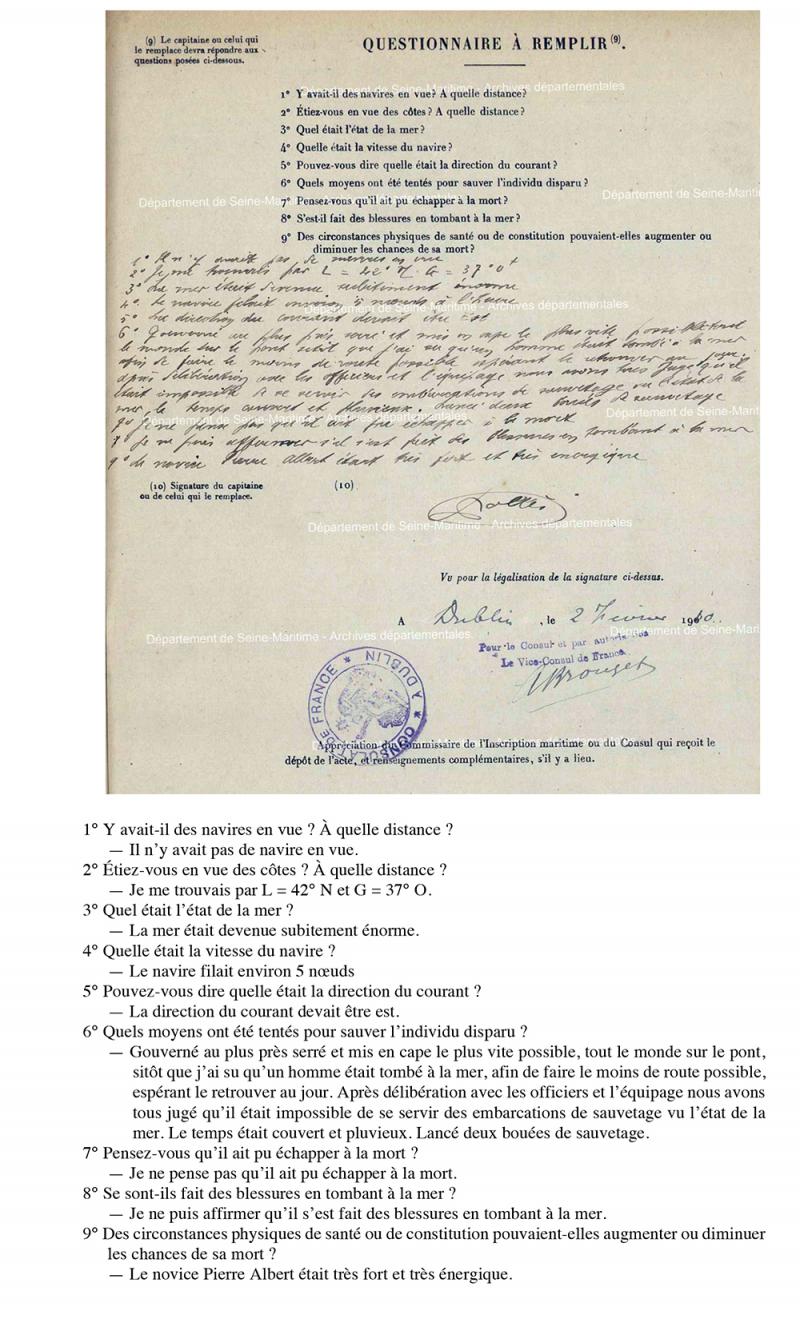 (9) Le capitaine ou celui qui
le remplace devra répondre aux
questions posées ci-dessous.
QUESTIONNAIRE À REMPLIR (9).
1° Y avait-il des navires en vue? A quelle distance?
2° Étiez-vous en vue des côtes? A quelle distance?
3° Quel était l'état de la mer?
4° Quelle était la vitesse du navire?
5° Pouvez-vous dire quelle était la direction du courant?
6° Quels moyens ont été tentés pour sauver l'individu disparu?
7° Pensez-vous qu'il ait pu échapper à la mort?
8° S'est-il fait des blessures en tombant à la mer?
9° Des circonstances physiques de santé ou de constitution pouvaient-elles augmenter ou
diminuer les chances de sa mort?
1° Il n'y avait pas de navires en vue
2° Je me trouvais par L = 42° N. G = 37° O
3° La mer était devenue subitement énorme
4° Le navire filait environ 5 nœuds à l'heure
5° La direction du courant devait être Est
6° Gouverné au plus près serré et mis en cape le plus vite possible tout
le monde sur le pont sitôt que j'ai su qu'un homme était tombé à la mer
afin de faire le moins de route possible espérant le retrouver au jour
après délibération avec les officiers et l'équipage nous avons tous jugé qu'il
était impossible de se servir des embarcations de sauvetage vu l'état de la
mer, le temps couvert et pluvieux lancé deux bouées de sauvetage
7° Je ne pense pas qu'il ait pu échapper à la mort
Je ne puis affirmer s'il s'est fait des blessures en tombant à la mer
9° Le novice Pierre Albert étant très fort et très énergique
(10) Signature du capitaine
ou de celui qui le remplace.
(10)
Vu pour la légalisation de la signature ci-dessus.
A Dublin, le 2 Février 1910.
Pour le Consul et par autorisation
Le Vice-Consul de France
CONSULAT DE FRANCE * A DUBLIN *
Appréciation du Commissaire de l'Inscription maritime ou du Consul qui reçoit le
dépôt de l'acte, et renseignements complémentaires, s'il y a lieu.
Département de Seine-Maritime - Archives départementales
1° Y avait-il des navires en vue ? À quelle distance ?
— Il n'y avait pas de navire en vue.
2° Étiez-vous en vue des côtes ? À quelle distance ?
— Je me trouvais par L = 42° N et G = 37° O.
3° Quel était l'état de la mer ?
— La mer était devenue subitement énorme.
4° Quelle était la vitesse du navire ?
— Le navire filait environ 5 nœuds
5° Pouvez-vous dire quelle était la direction du courant ?
— La direction du courant devait être est.
6° Quels moyens ont été tentés pour sauver l'individu disparu ?
— Gouverné au plus près serré et mis en cape le plus vite possible, tout le monde sur le pont,
sitôt que j'ai su qu'un homme était tombé à la mer, afin de faire le moins de route possible,
espérant le retrouver au jour. Après délibération avec les officiers et l'équipage nous avons
tous jugé qu'il était impossible de se servir des embarcations de sauvetage vu l'état de la
mer. Le temps était couvert et pluvieux. Lancé deux bouées de sauvetage.
7° Pensez-vous qu'il ait pu échapper à la mort ?
— Je ne pense pas qu'il ait pu échapper à la mort.
8° Se sont-ils fait des blessures en tombant à la mer ?
— Je ne puis affirmer qu'il s'est fait des blessures en tombant à la mer.
9° Des circonstances physiques de santé ou de constitution pouvaient-elles augmenter ou diminuer
les chances de sa mort ?
— Le novice Pierre Albert était très fort et très énergique.